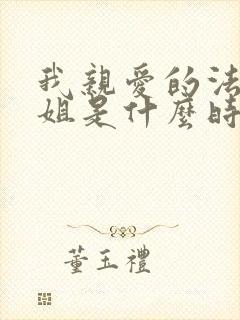 我親愛的法
姐是什麼時
董玉禮